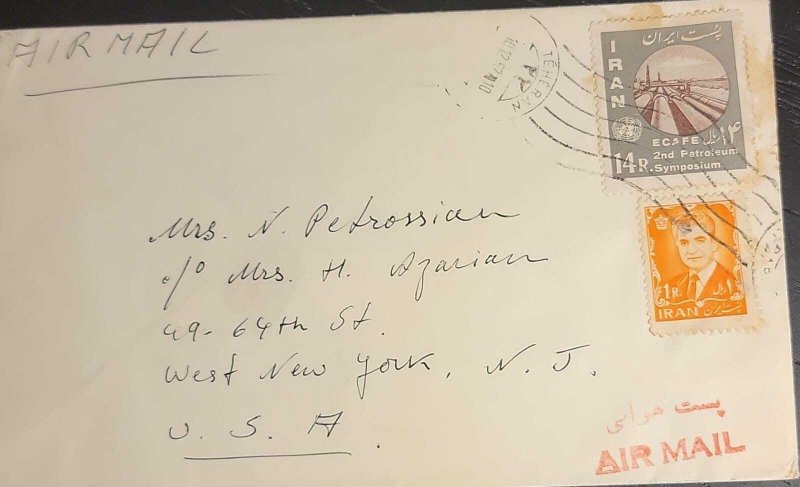 AIR MAIL
10.12.62
TEHERAN
پست ایران
IRAN
ECAFE ۱۴ ریال
14R. 2nd Petroleum
Symposium
Mrs. N. Petrossian
c/o Mrs. H. Azarian
49-64th St.
West New York, N. J.
U. S. A.
1R. ۱ ریال
IRAN پست ایران
پست هوائی
AIR MAIL